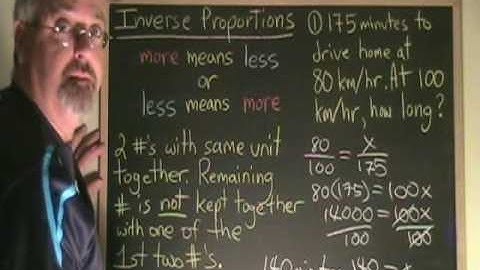 Inverse Proportions
more means less
or
less means more
2 #'s with same unit
together. Remaining
# is not kept together
with one of the
1st two #'s.
① 175 minutes to
drive home at
80 km/hr. At 100
km/hr, how long?
80/100 = x/175
80(175) = 100x
14000/100 = 100x/100
140